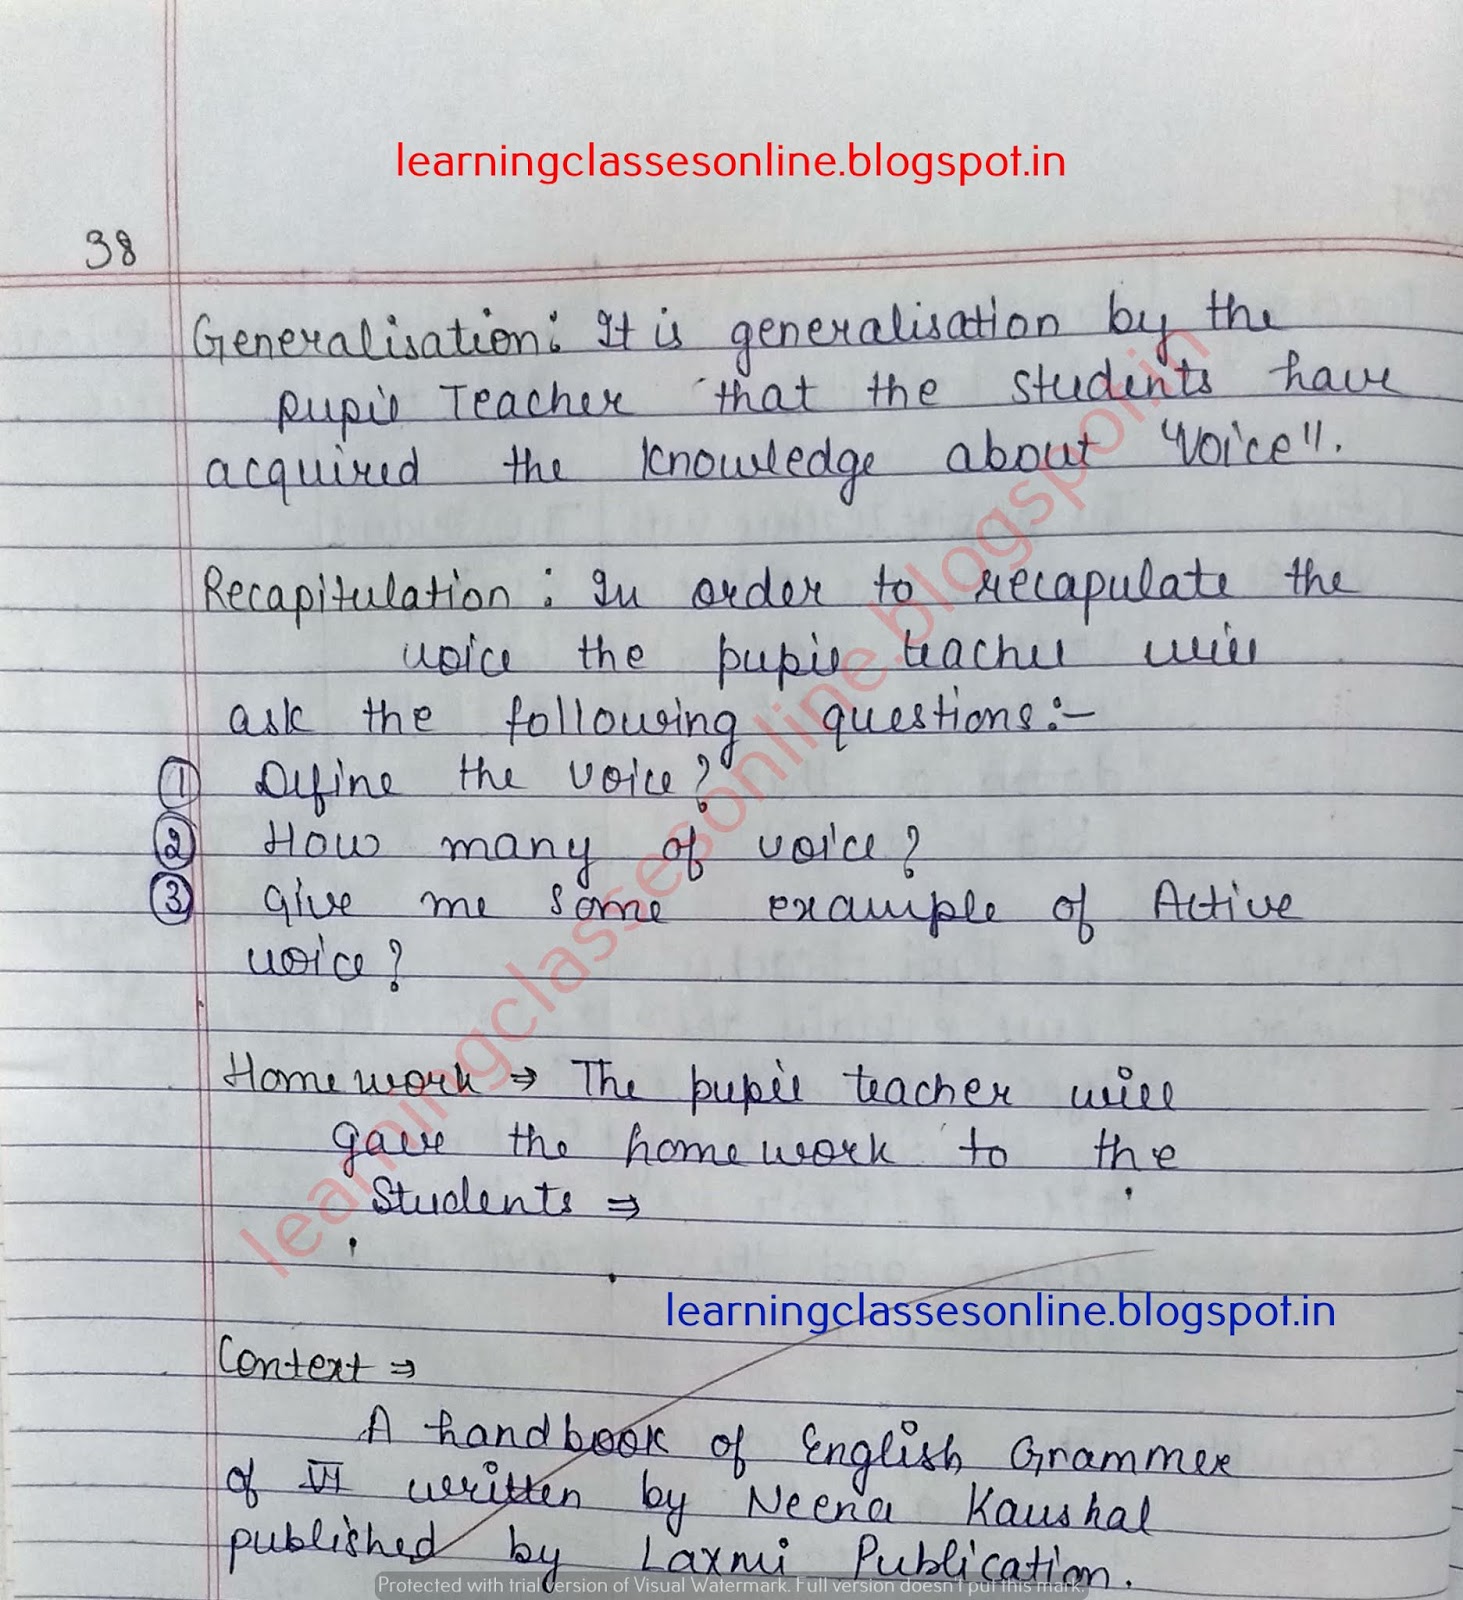 learningclassesonline.blogspot.in
38
Generalisation: It is generalisation by the
pupil Teacher that the students have
acquired the knowledge about "Voice".
Recapitulation : In order to recapulate the
voice the pupil teacher will
ask the following questions:-
① Define the voice?
② How many of voice?
③ Give me some example of Active
voice?
Home work ⇒ The pupil teacher will
gave the home work to the
Students ⇒
learningclassesonline.blogspot.in
learningclassesonline.blogspot.in
Context ⇒
A handbook of English Grammer
of VI written by Neena Kaushal
published by Laxmi Publication.
Protected with trial version of Visual Watermark. Full version doesn't put this mark.